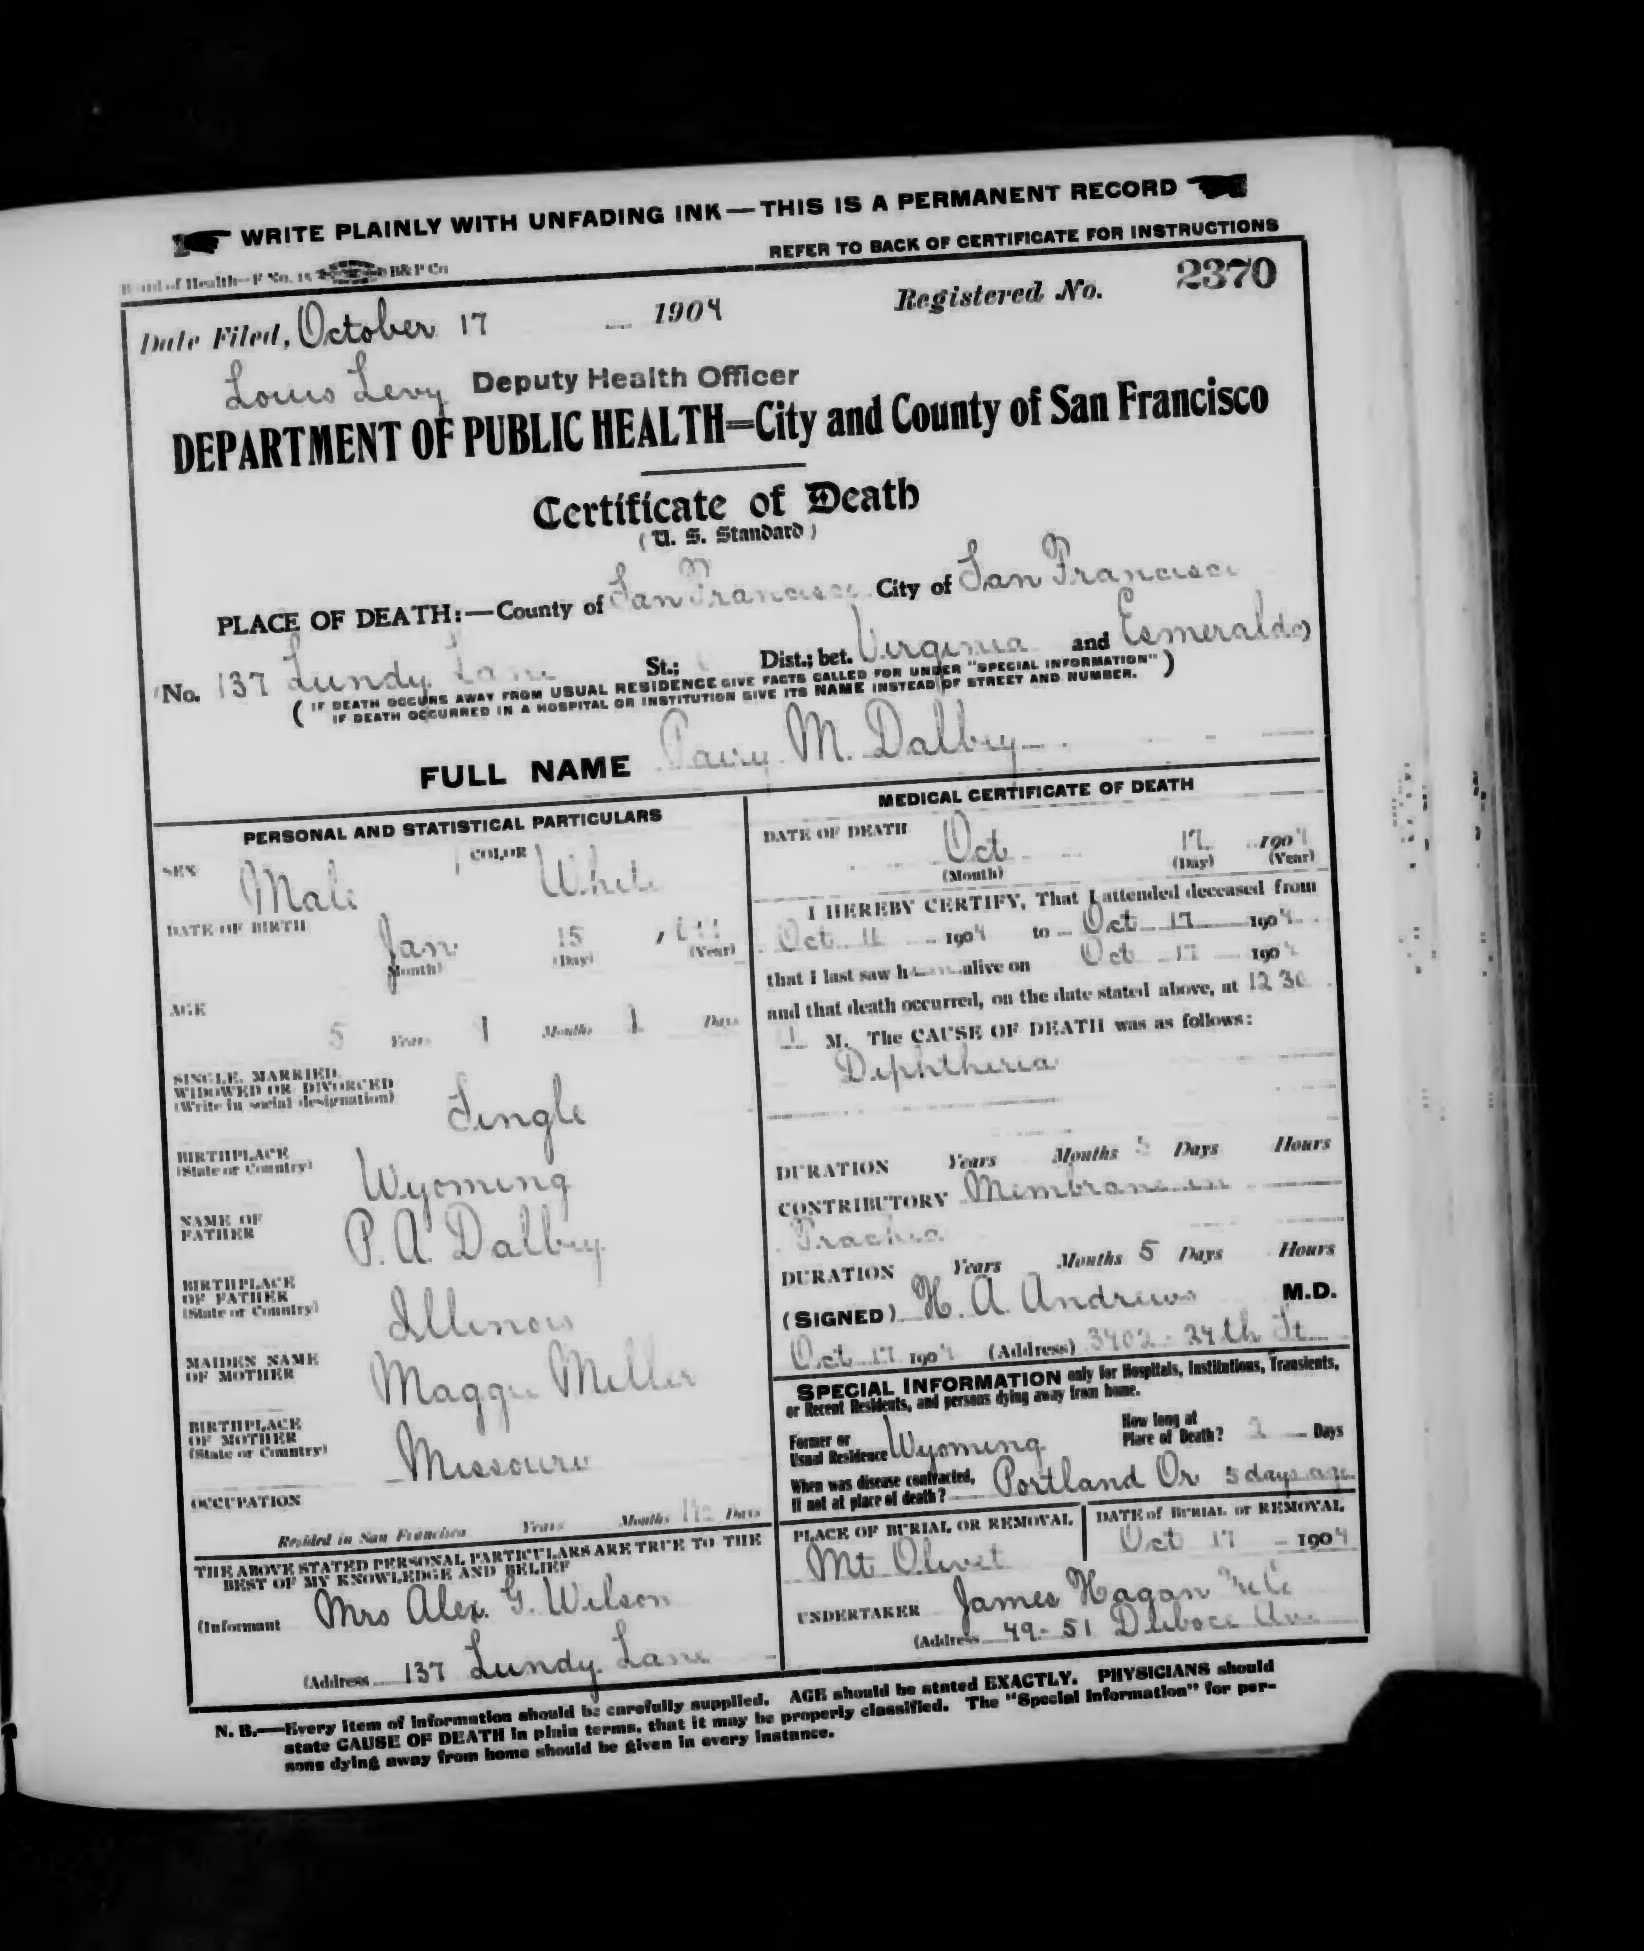 WRITE PLAINLY WITH UNFADING INK—THIS IS A PERMANENT RECORD
REFER TO BACK OF CERTIFICATE FOR INSTRUCTIONS
Board of Health—F No. 15 B&P Co
Date Filed, October 17 1904 Registered No. 2370
Louis Levy Deputy Health Officer
DEPARTMENT OF PUBLIC HEALTH=City and County of San Francisco
Certificate of Death
(U. S. Standard)
PLACE OF DEATH:—County of San Francisco City of San Francisco
No. 137 Lundy Lane St.; Dist.; bet. Virginia and Esmeralda)
(IF DEATH OCCURS AWAY FROM USUAL RESIDENCE GIVE FACTS CALLED FOR UNDER "SPECIAL INFORMATION"
IF DEATH OCCURRED IN A HOSPITAL OR INSTITUTION GIVE ITS NAME INSTEAD OF STREET AND NUMBER.)
FULL NAME M. Dalbey
PERSONAL AND STATISTICAL PARTICULARS
SEX Male COLOR White
DATE OF BIRTH Jan 15
(Month) (Day) (Year)
AGE 5 Years 1 Months 1 Days
SINGLE, MARRIED,
WIDOWED OR DIVORCED
(Write in social designation) Single
BIRTHPLACE
(State or Country) Wyoming
NAME OF
FATHER P. A. Dalbey
BIRTHPLACE
OF FATHER
(State or Country) Illinois
MAIDEN NAME
OF MOTHER Maggie Miller
BIRTHPLACE
OF MOTHER
(State or Country) Missouri
OCCUPATION
Resided in San Francisco Years Months Days
THE ABOVE STATED PERSONAL PARTICULARS ARE TRUE TO THE
BEST OF MY KNOWLEDGE AND BELIEF
(Informant Mrs Alex. G. Wilson
(Address 137 Lundy Lane
MEDICAL CERTIFICATE OF DEATH
DATE OF DEATH Oct 17 1904
(Month) (Day) (Year)
I HEREBY CERTIFY, That I attended deceased from
Oct 1904 to Oct 17 1904
that I last saw h alive on Oct 17 1904
and that death occurred, on the date stated above, at 12 30
M. The CAUSE OF DEATH was as follows:
Diphtheria
DURATION Years Months 5 Days Hours
CONTRIBUTORY Membrane in
Trachea
DURATION Years Months 5 Days Hours
(SIGNED) H. A. Andrews M.D.
Oct 17 1904 (Address) 3402 - 24th St
SPECIAL INFORMATION only for Hospitals, Institutions, Transients,
or Recent Residents, and persons dying away from home.
Former or
Usual Residence Wyoming
How long at
Place of Death? 2 Days
When was disease contracted,
If not at place of death? Portland Or 5 days ago
PLACE OF BURIAL OR REMOVAL Mt Olivet
DATE of BURIAL or REMOVAL Oct 17 1904
UNDERTAKER James Hagan
(Address 49-51 Duboce Ave
N. B.—Every item of information should be carefully supplied. AGE should be stated EXACTLY. PHYSICIANS should
state CAUSE OF DEATH in plain terms, that it may be properly classified. The "Special Information" for per-
sons dying away from home should be given in every instance.